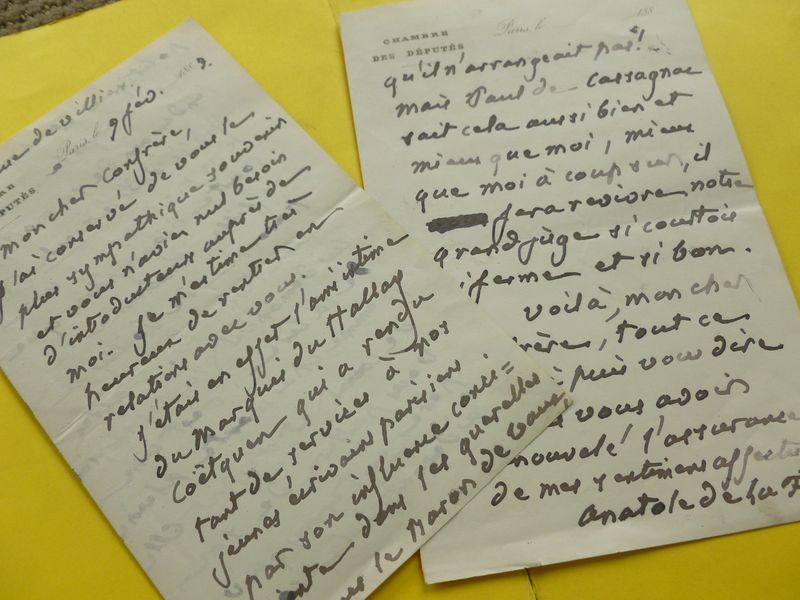 rue de villiers
CHAMBRE
DES DÉPUTÉS
Paris, le
9 fév. 188 9.
mon cher confrère,
J'ai conservé de vous le
plus sympathique souvenir
et vous n'aviez nul besoin
d'introducteurs auprès de
moi. Je m'estime très
heureux de rentrer en
relations avec vous.
J'étais en effet l'ami intime
du Marquis du Hallay
Coëtquen qui a rendu
tant de services à nos
jeunes écrivains parisiens
par son influence consi=
dans les querelles
le Baron de Vaux
CHAMBRE
DES DÉPUTÉS
Paris, le 188
qu'il n'arrangeait pas!
mais Paul de Cassagnac
sait cela aussi bien et
mieux que moi, mieux
que moi à coup sur, il
fera revivre notre
grand juge si courtois
si ferme et si bon.
voilà, mon cher
frère, tout ce
puis vous dire
vous avoir
nouvelé l'assurance
de mes sentimens affectu
Anatole de La F